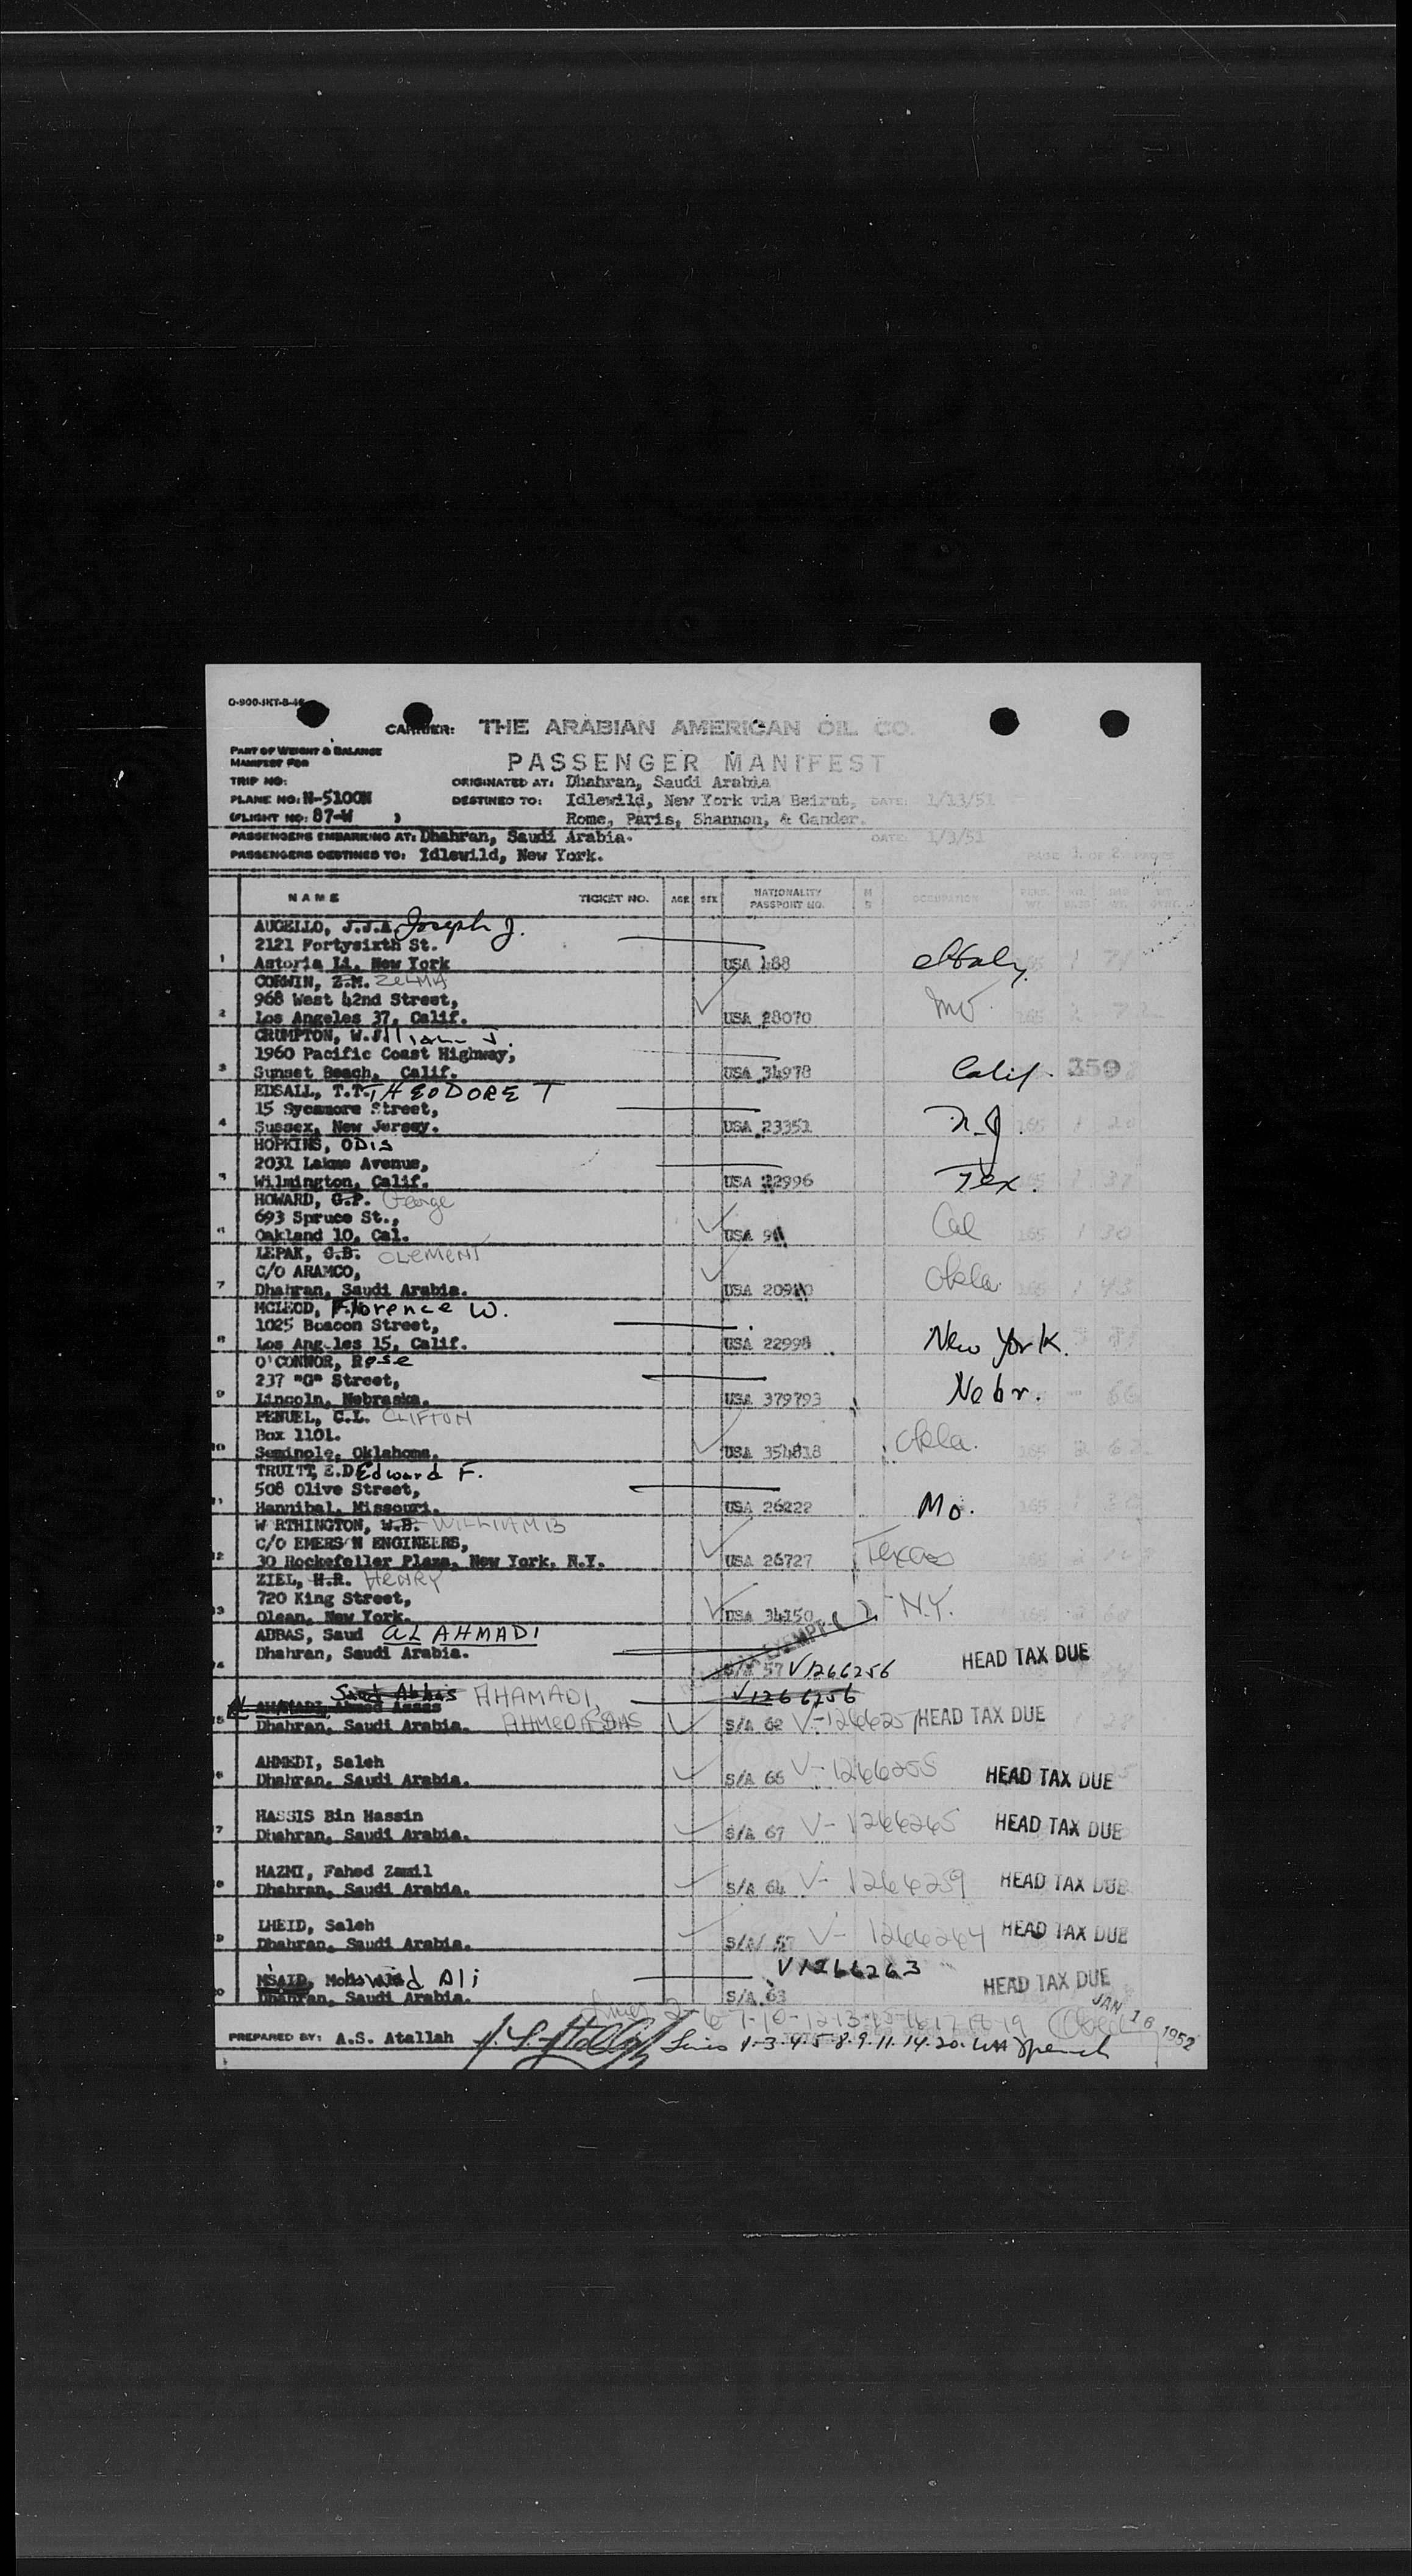 CARRIER: THE ARABIAN AMERICAN OIL CO.
PART OF WEIGHT & BALANCE
MANIFEST FOR
PASSENGER MANIFEST
TRIP NO: ORIGINATED AT: Dhahran, Saudi Arabia
PLANE NO: N-5100N DESTINED TO: Idlewild, New York via Beirut, DATE: 1/13/51
(FLIGHT NO: 87-W ) Rome, Paris, Shannon, & Gander.
PASSENGERS EMBARKING AT: Dhahran, Saudi Arabia. DATE: 1/3/51
PASSENGERS DESTINED TO: Idlewild, New York. PAGE 1 OF 2 PAGES
NAME TICKET NO. AGE SEX NATIONALITY PASSPORT NO. M S OCCUPATION
AUGELLO, J.J.A. Joseph J.
2121 Fortysixth St.
1 Astoria Li, New York USA 488 Italy
CORWIN, Z.M. ZELMA
968 West 42nd Street,
2 Los Angeles 37, Calif. USA 28070 Mo.
CRUMPTON, William J.
1960 Pacific Coast Highway,
3 Sunset Beach, Calif. USA 34978 Calif. 359
EDSALL, T.T. THEODORE T
15 Sycamore Street,
4 Sussex, New Jersey. USA 23351 N.J.
HOPKINS, ODIS
2031 Lakme Avenue,
5 Wilmington, Calif. USA 22996 Tex.
HOWARD, G.P. George
693 Spruce St.,
6 Oakland 10, Cal. USA Cal
LEPAK, C.B. CLEMENT
C/O ARAMCO,
7 Dhahran, Saudi Arabia. USA Okla.
MCLEOD, Florence W.
1025 Beacon Street,
8 Los Angeles 15, Calif. USA 22998 New York.
O'CONNOR, Rose
237 "G" Street,
9 Lincoln, Nebraska. USA 379793 Nebr.
PENUEL, C.L. CLIFTON
Box 1101.
10 Seminole, Oklahoma. USA 354818 Okla.
TRUITT, E.D Edward F.
508 Olive Street,
11 Hannibal, Missouri. USA 26222 Mo.
W RTHINGTON, W.B. WILLIAM B
C/O EMERS N ENGINEERS,
12 30 Rockefeller Plaza, New York, N.Y. USA 26727 Texas
ZIEL, H.R. HENRY
720 King Street,
13 Olean, New York. USA 34150 N.Y.
ABBAS, Saud AL AHMADI
Dhahran, Saudi Arabia. S/A 57 V1266256 HEAD TAX DUE
14
Saud Abbas AHAMADI, V1266256
AHAMADI, Ahmed Assas AHMED
15 Dhahran, Saudi Arabia. S/A 62 HEAD TAX DUE
AHMEDI, Saleh
16 Dhahran, Saudi Arabia. S/A 66 V-1266255 HEAD TAX DUE
HASSIS Bin Hassin
17 Dhahran, Saudi Arabia. S/A 67 V-1266265 HEAD TAX DUE
HAZMI, Fahed Zamil
18 Dhahran, Saudi Arabia. S/A 64 V-1266259 HEAD TAX DUE
LHEID, Saleh
19 Dhahran, Saudi Arabia. S/A/ V-1266264 HEAD TAX DUE
MSAID, Mohamed Ali V1266263
20 Dhahran, Saudi Arabia. S/A 63 HEAD TAX DUE
JAN 16 1952
Lines 2-6-7-10-12-13-15-16-17-18-19
PREPARED BY: A.S. Atallah Lines 1-3-4-5-8-9-11-14-20